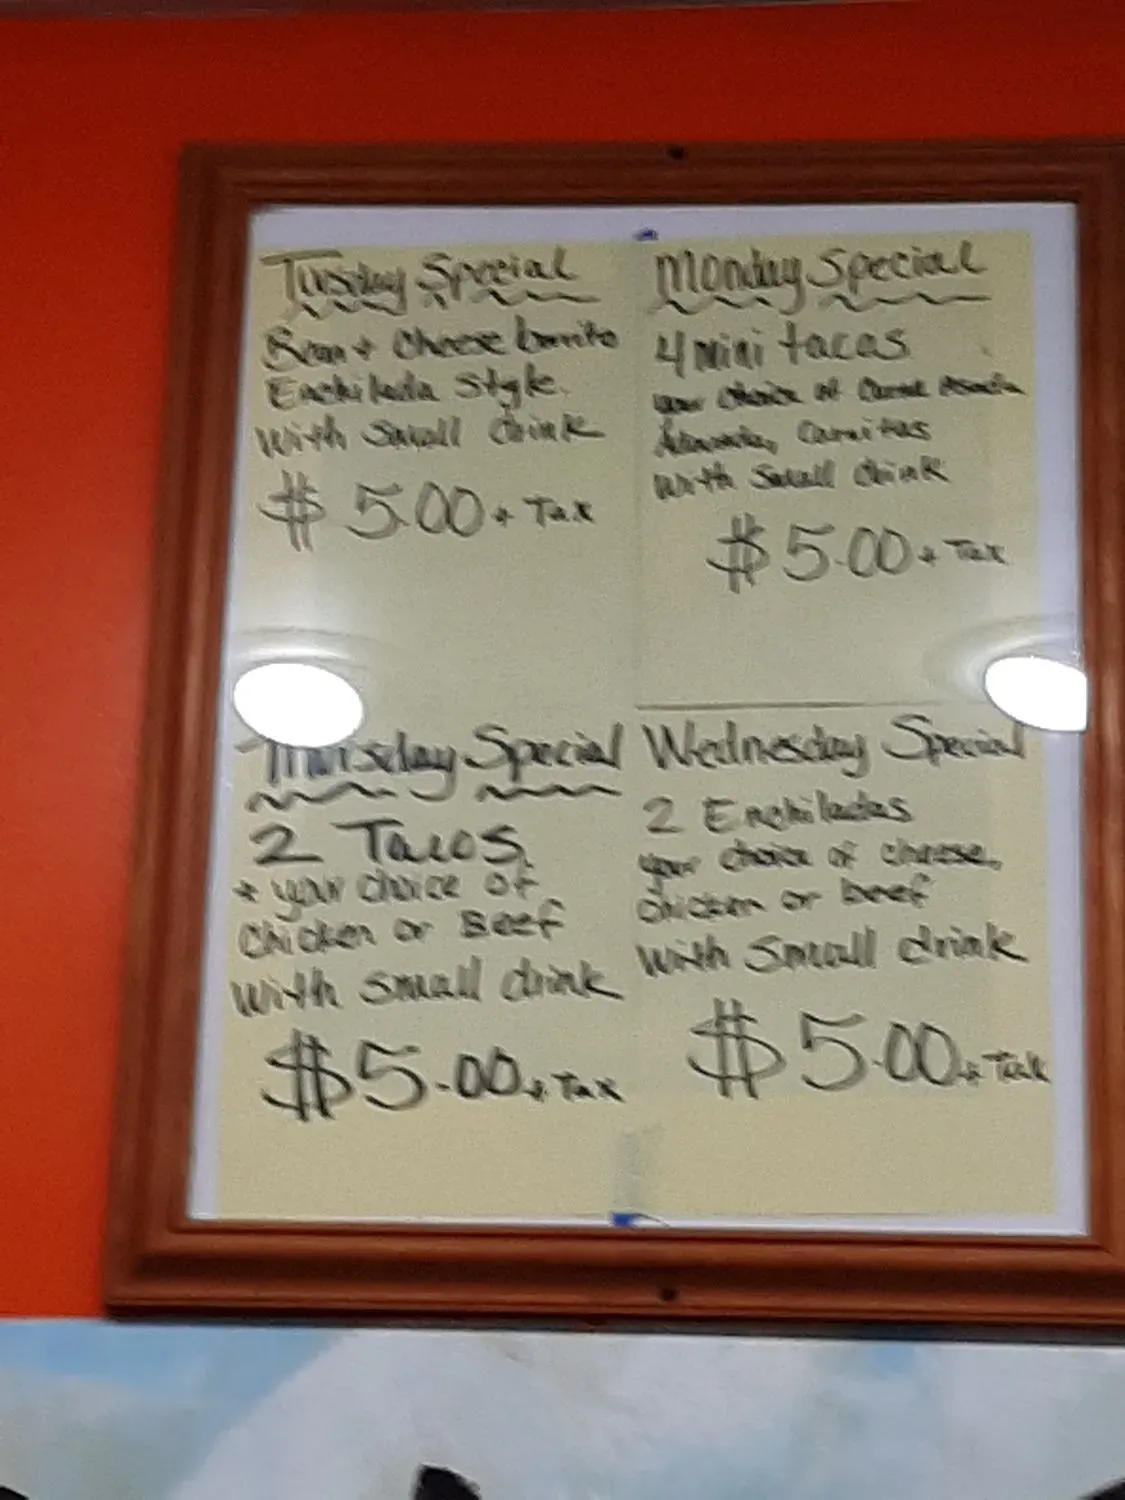 Tusday Special
Bean + Cheese burrito
Enchilada Style.
with Small drink
$ 5.00 + Tax
Monday Special
4 mini tacos
your choice of Carne Asada
Adovada, Carnitas
with Small drink
$ 5.00 + Tax
Thursday Special
2 Tacos
+ your choice of
Chicken or Beef
with small drink
$5.00 + Tax
Wednesday Special
2 Enchiladas
your choice of cheese,
chicken or beef
with Small drink
$5.00 + Tax